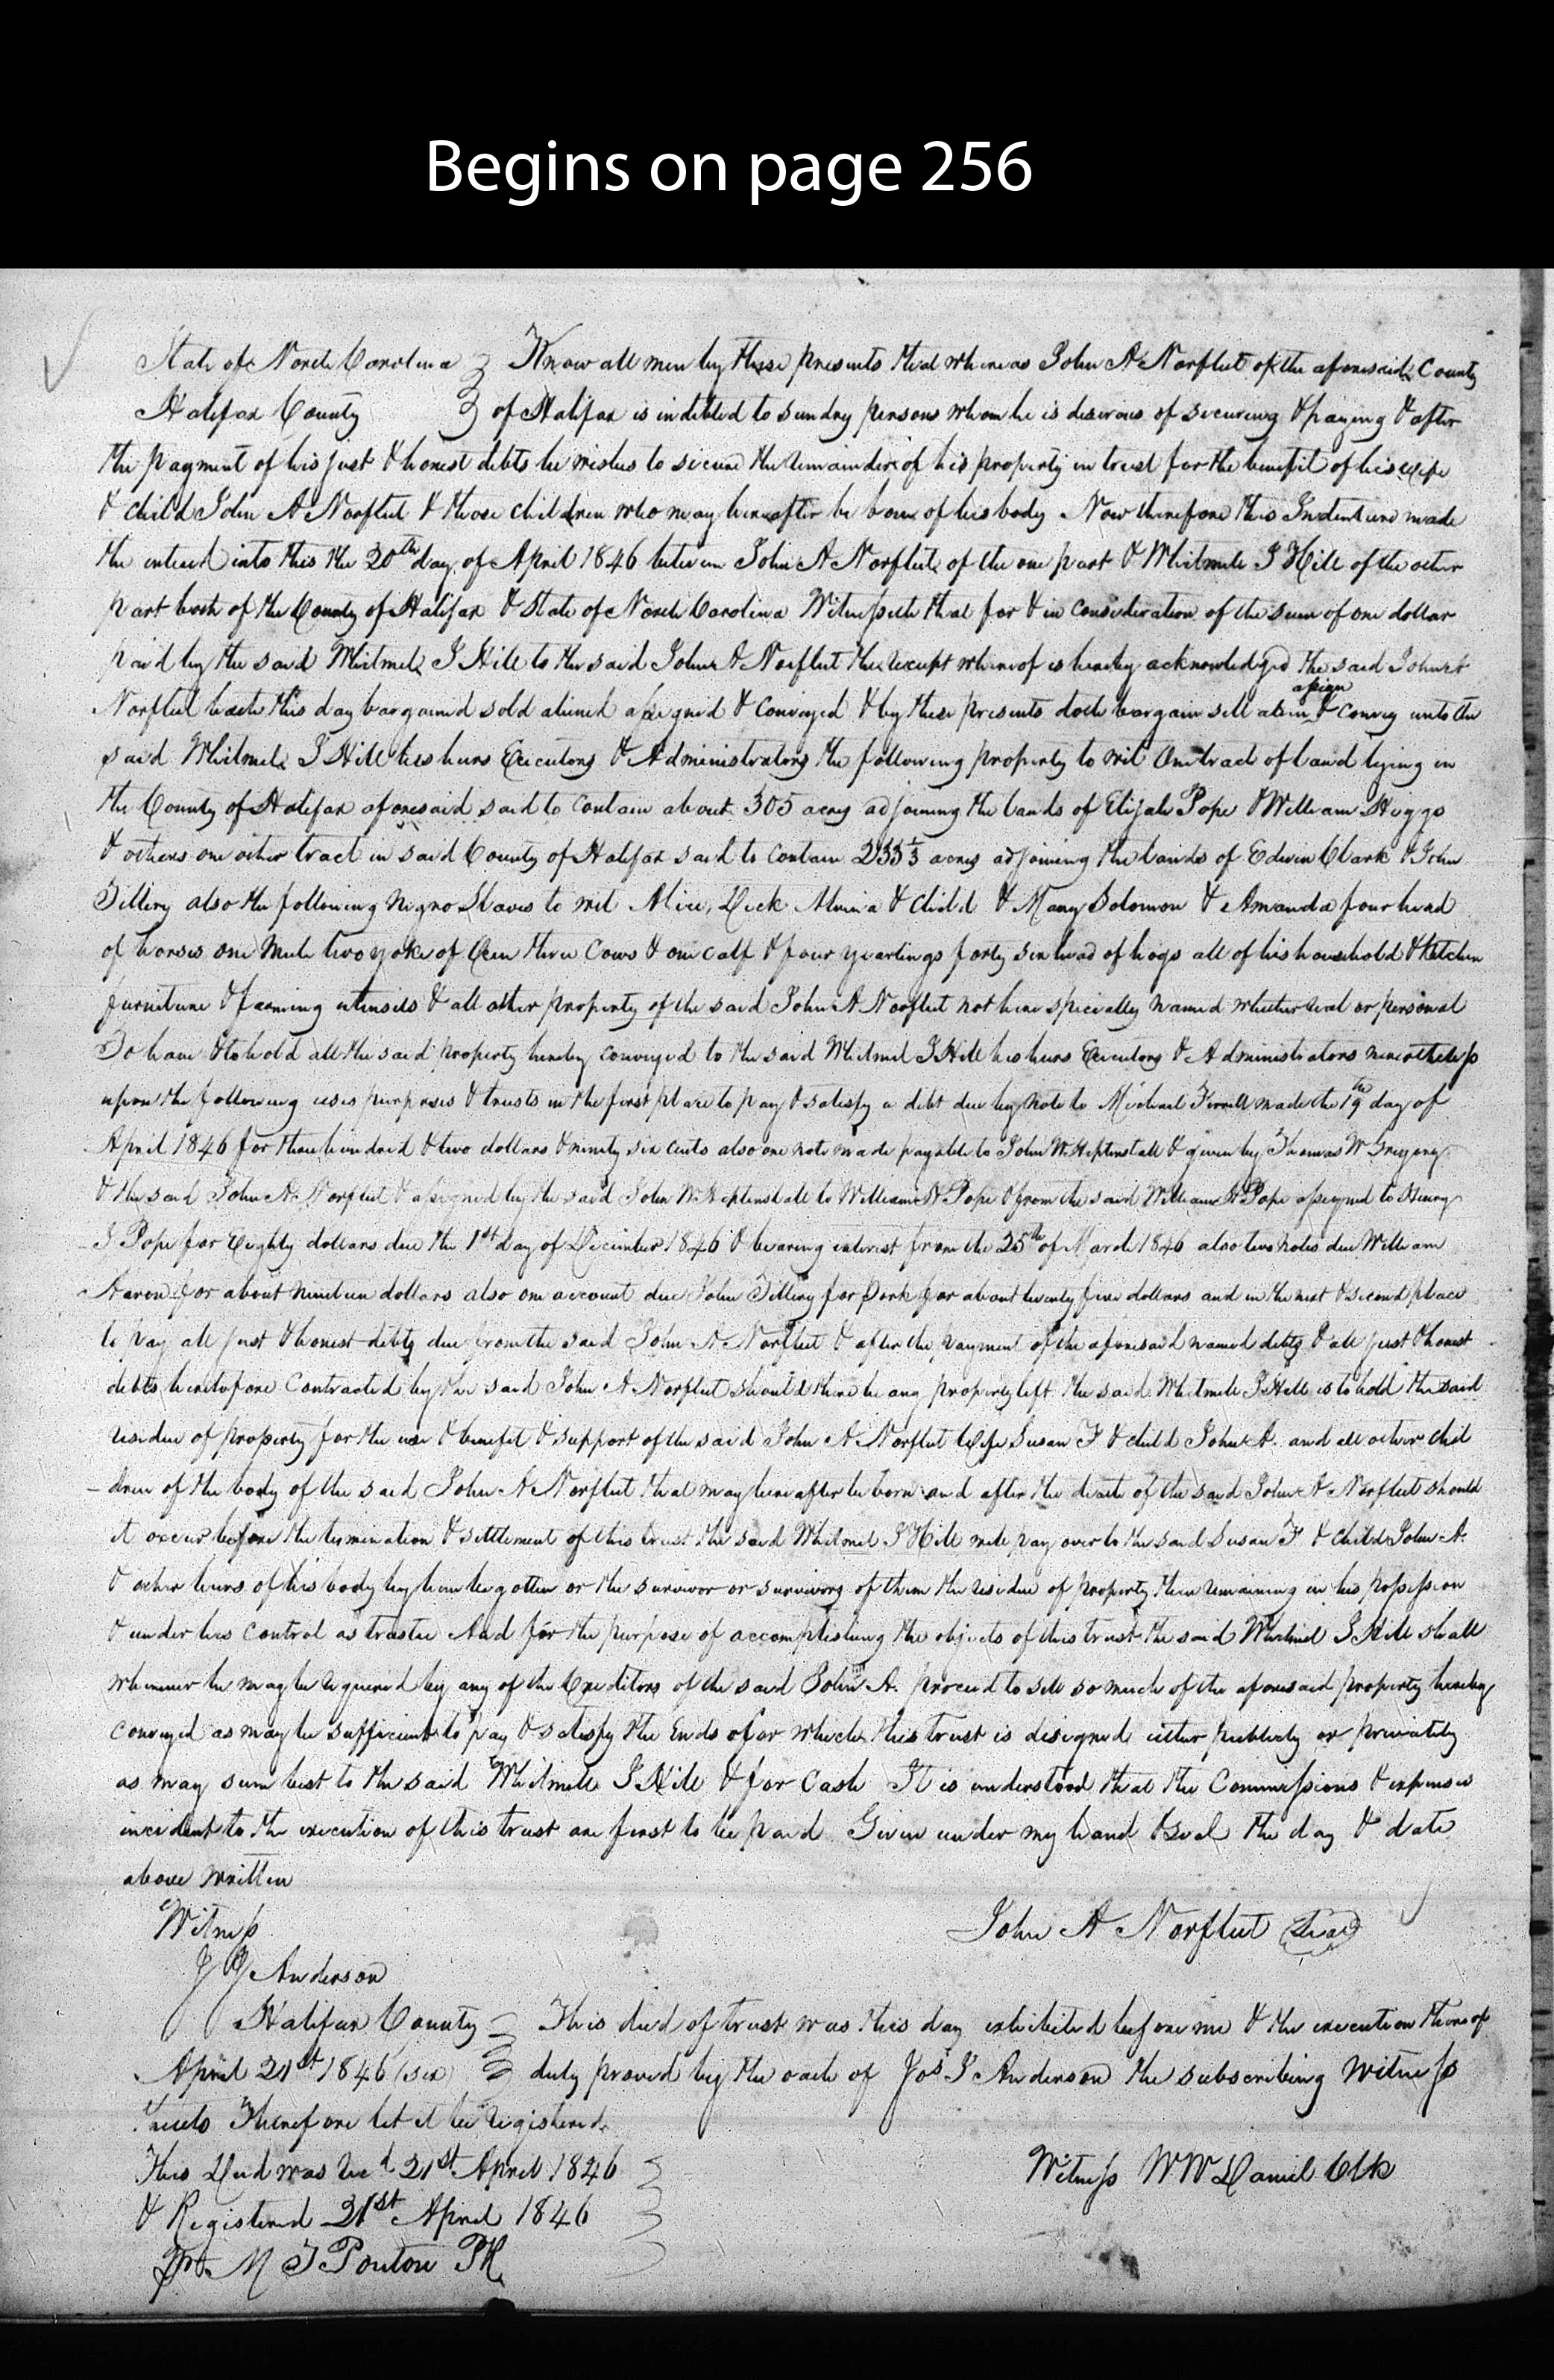 Begins on page 256
State of North Carolina } Know all men by these presents that whereas John A Norfleet of the aforesaid County
Halifax County } of Halifax is indebted to sundry persons whom he is desirous of securing & paying & after
the payment of his just & honest debts he wishes to secure the remainder of his property in trust for the benefit of his wife
& child John A Norfleet & those children who may hereafter be born of his body Now therefore this Indenture made
the entered into this the 20th day of April 1846 between John A Norfleet of the one part & Whitmel J Hill of the other
part both of the County of Halifax & State of North Carolina Witnesseth that for & in consideration of the sum of one dollar
paid by the said Whitmel J Hill to the said John A Norfleet the receipt whereof is hereby acknowledged the said John A
Norfleet hath this day bargained sold aliened assigned & Conveyed & by these presents doth bargain sell alien assign & Convey unto the
said Whitmel J Hill his heirs Executors & Administrators the following property to wit One tract of land lying in
the County of Halifax aforesaid said to Contain about 305 acres adjoining the lands of Elijah Pope & William Higgs
& others one other tract in said County of Halifax said to Contain 233 1/3 acres adjoining the lands of Edwin Clark & John
Tillery also the following Negro Slaves to wit Alice, Dick & Child & Mary Solomon & Amanda four head
of horses one Mule two yoke of Oxen three Cows & one calf & four yearlings forty six head of hogs all of his household & Kitchen
furniture & farming utensils & all other property of the said John A Norfleet not here specially named whether real or personal
To have & to hold all the said property hereby conveyed to the said Whitmel J Hill his heirs Executors & Administrators nevertheless
upon the following uses purposes & trusts in the first place to pay & satisfy a debt due by note to Michael Ferrell made the 19th day of
April 1846 for three hundred & two dollars & ninety six cents also one note made payable to John W Heptinstall & given by Thomas W Gregory
& the said John A Norfleet & assigned by the said John W Heptinstall to William H Pope & from the said William H Pope assigned to Henry
J Pope for Eighty dollars due the 1st day of December 1846 & bearing interest from the 25th of March 1846 also two notes due William
Aaron for about nineteen dollars also one account due John Tillery for Pork for about twenty five dollars and in the next & second place
to pay all just & honest debts due from the said John A Norfleet & after the payment of the aforesaid named debts & all just & honest
debts heretofore Contracted by the said John A Norfleet should there be any property left the said Whitmel J Hill is to hold the said
residue of property for the use & benefit & support of the said John A Norfleet wife Susan F & child John A. and all other chil
-dren of the body of the said John A Norfleet that may hereafter be born and after the death of the said John A Norfleet should
it occur before the termination & settlement of this trust the said Whitmel J Hill will pay over to the said Susan F & child John A.
& other heirs of his body by him begotten or the survivor or survivors of them the residue of property then remaining in his possession
& under his Control as trustee And for the purpose of accomplishing the objects of this trust the said Whitmel J Hill shall
whenever he may be required by any of the Creditors of the said John A. proceed to sell so much of the aforesaid property hereby
Conveyed as may be sufficient to pay & satisfy the Ends of or which this trust is designed either publicly or privately
as may seem best to the said Whitmel J Hill & for Cash It is understood that the Commissions & expenses
incident to the execution of this trust are first to be paid Given under my hand & seal the day & date
above written
Witness
John A Norfleet (Seal)
J J Anderson
Halifax County } This deed of trust was this day exhibited before me & the execution thereof
April 21st 1846 (six) } duly proved by the oath of Jos J Anderson the subscribing Witness
thereto Therefore let it be registered.
This Deed was recd 21st April 1846
Witness WW Daniel Clk
& Registered 21st April 1846
Pr. M T Ponton PR